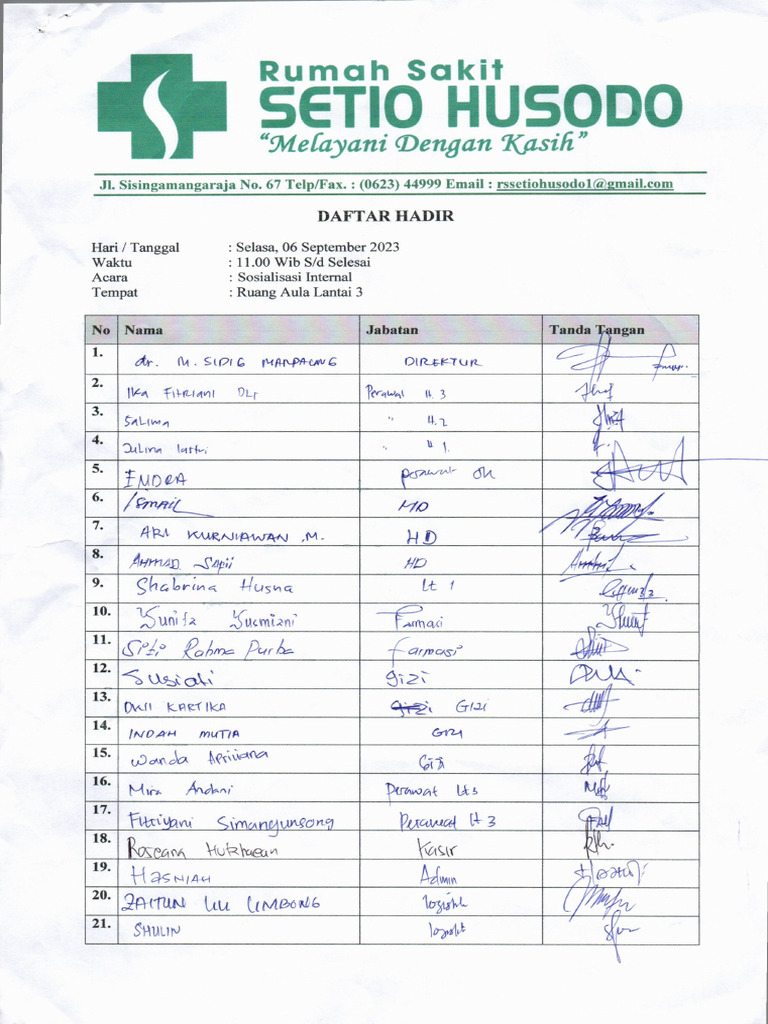 Rumah Sakit
SETIO HUSODO
"Melayani Dengan Kasih"
Jl. Sisingamangaraja No. 67 Telp/Fax. : (0623) 44999 Email : rssetiohusodo1@gmail.com
DAFTAR HADIR
Hari / Tanggal : Selasa, 06 September 2023
Waktu : 11.00 Wib S/d Selesai
Acara : Sosialisasi Internal
Tempat : Ruang Aula Lantai 3
No Nama Jabatan Tanda Tangan
1. dr. M. SIDIG MARPAUNG DIREKTUR
2. IKA FITRIANI Perawat lt. 3
3. SALIMA " lt. 2
4. " lt 1.
5. ENDRA perawat ok
6. ISMAIL HD
7. ARI KURNIAWAN .M. HD
8. AHMAD HD
9. Shabrina Husna Lt 1
10. Yunita Yusmiani Farmasi
11. Siti Rahma Purba farmasi
12. Susiati gizi
13. DWI KARTIKA gizi GIZI
14. INDAH MUTIA GIZI
15. Wanda Apriliana Gizi
16. Mira Andani Perawat Lt 3
17. Fitriyani Simangunsong Perawat Lt 3
18. Roseana Hutahaean Kasir
19. HASNIAH Admin
20. ZAITUN LIMBONG logistik
21. SHULIN logistik